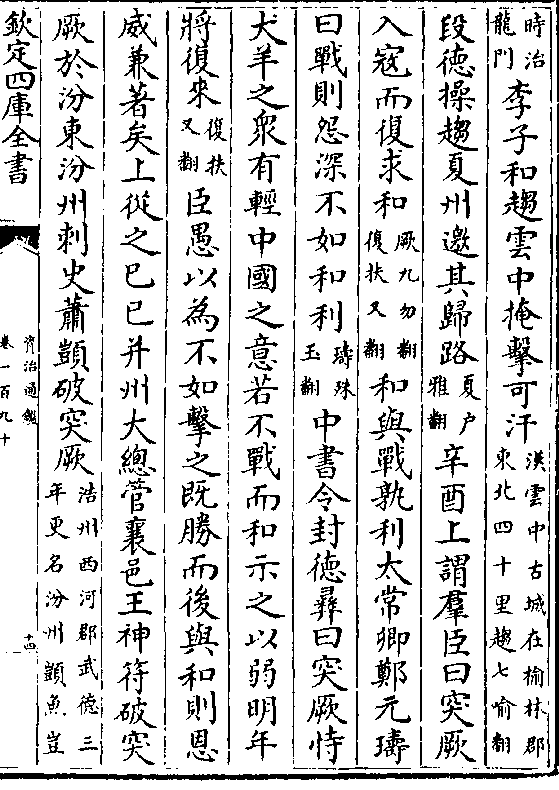 時治龍門李子和趨雲中掩擊可汗漢雲中古城在榆林郡東北四十里趨七喻翻
段德操趨夏州邀其歸路夏户雅翻辛酉上謂羣臣曰突厥
入寇而復求和厥九勿翻復扶又翻和與戰孰利太常卿鄭元璹
曰戰則怨深不如和利璹殊玉翻中書令封德彞曰突厥恃
犬羊之衆有輕中國之意若不戰而和示之以弱明年
將復來復扶又翻臣愚以為不如擊之既勝而後與和則恩
威兼著矣上從之己巳并州大總管襄邑王神符破突
厥於汾東汾州刺史蕭顗破突厥浩州西河郡武德三年更名汾州顗魚豈
欽定四庫全書
資治通鑑
卷一百九十
十四